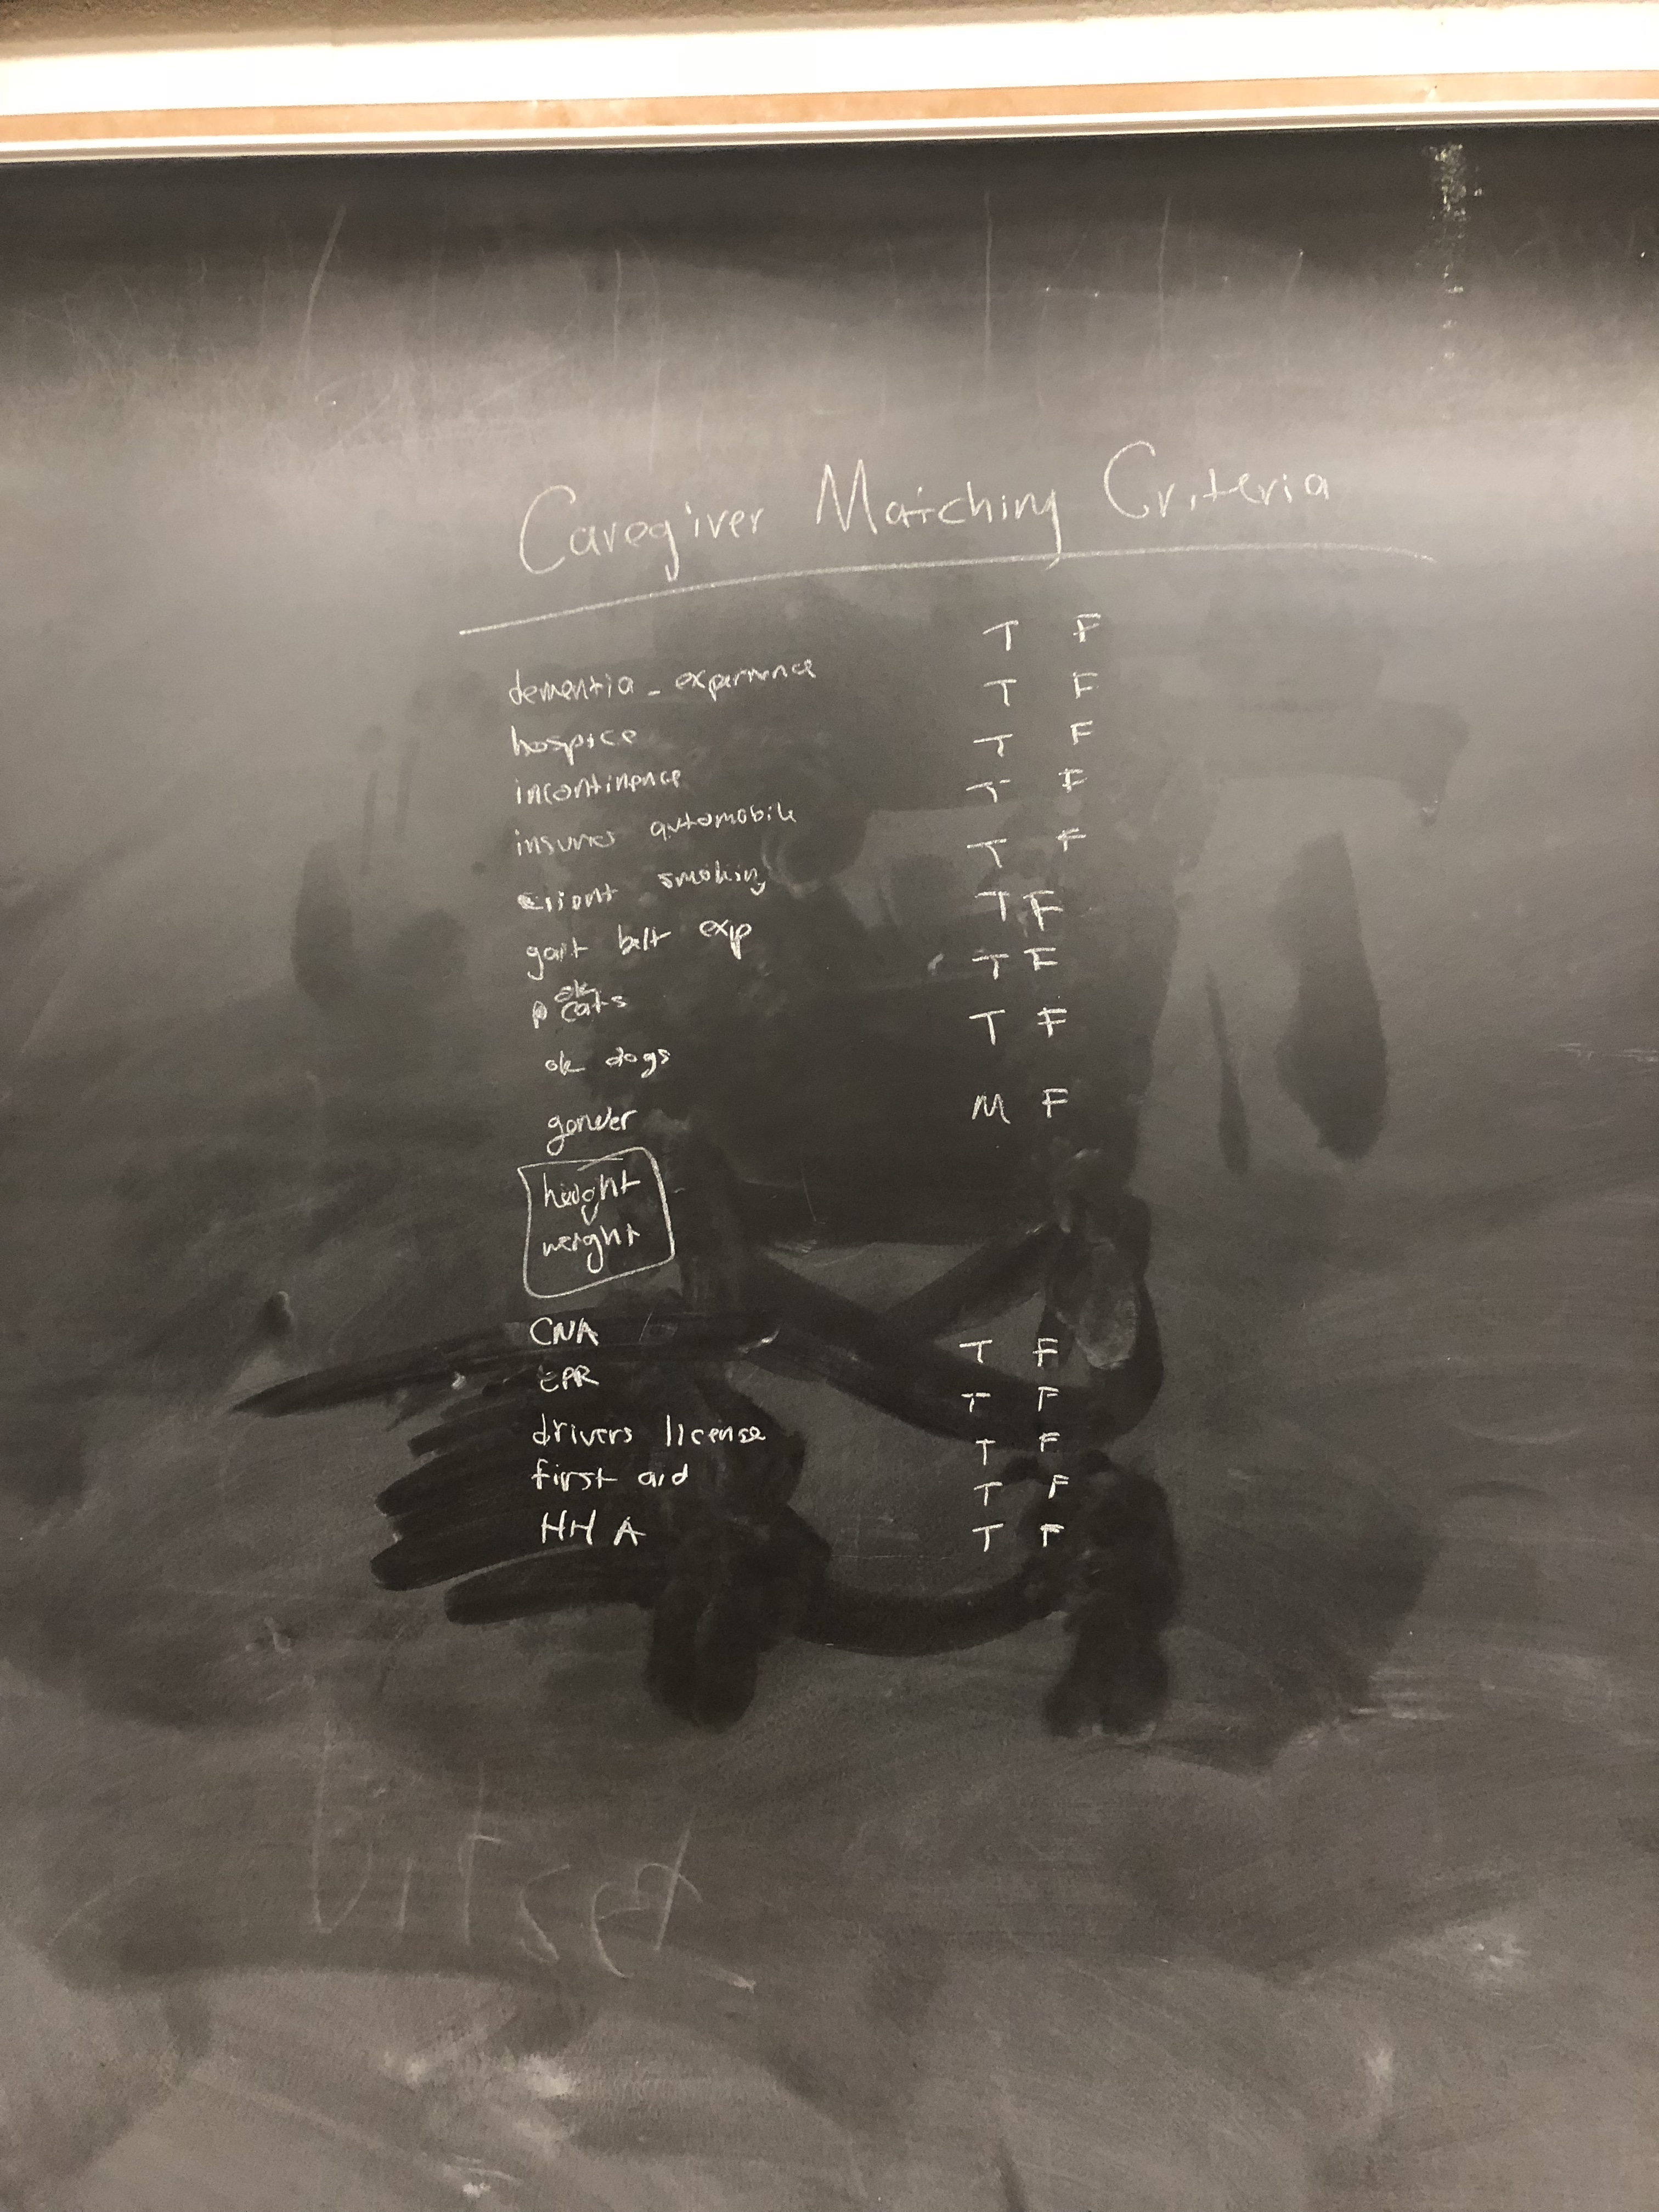 Caregiver Matching Criteria
dementia - experience T F
hospice T F
incontinence T F
insured automobile T F
client smoking T F
gait belt exp T F
ok cats T F
ok dogs T F
gender M F
height
weight
CNA T F
CPR T F
drivers license T F
first aid T F
HHA T F